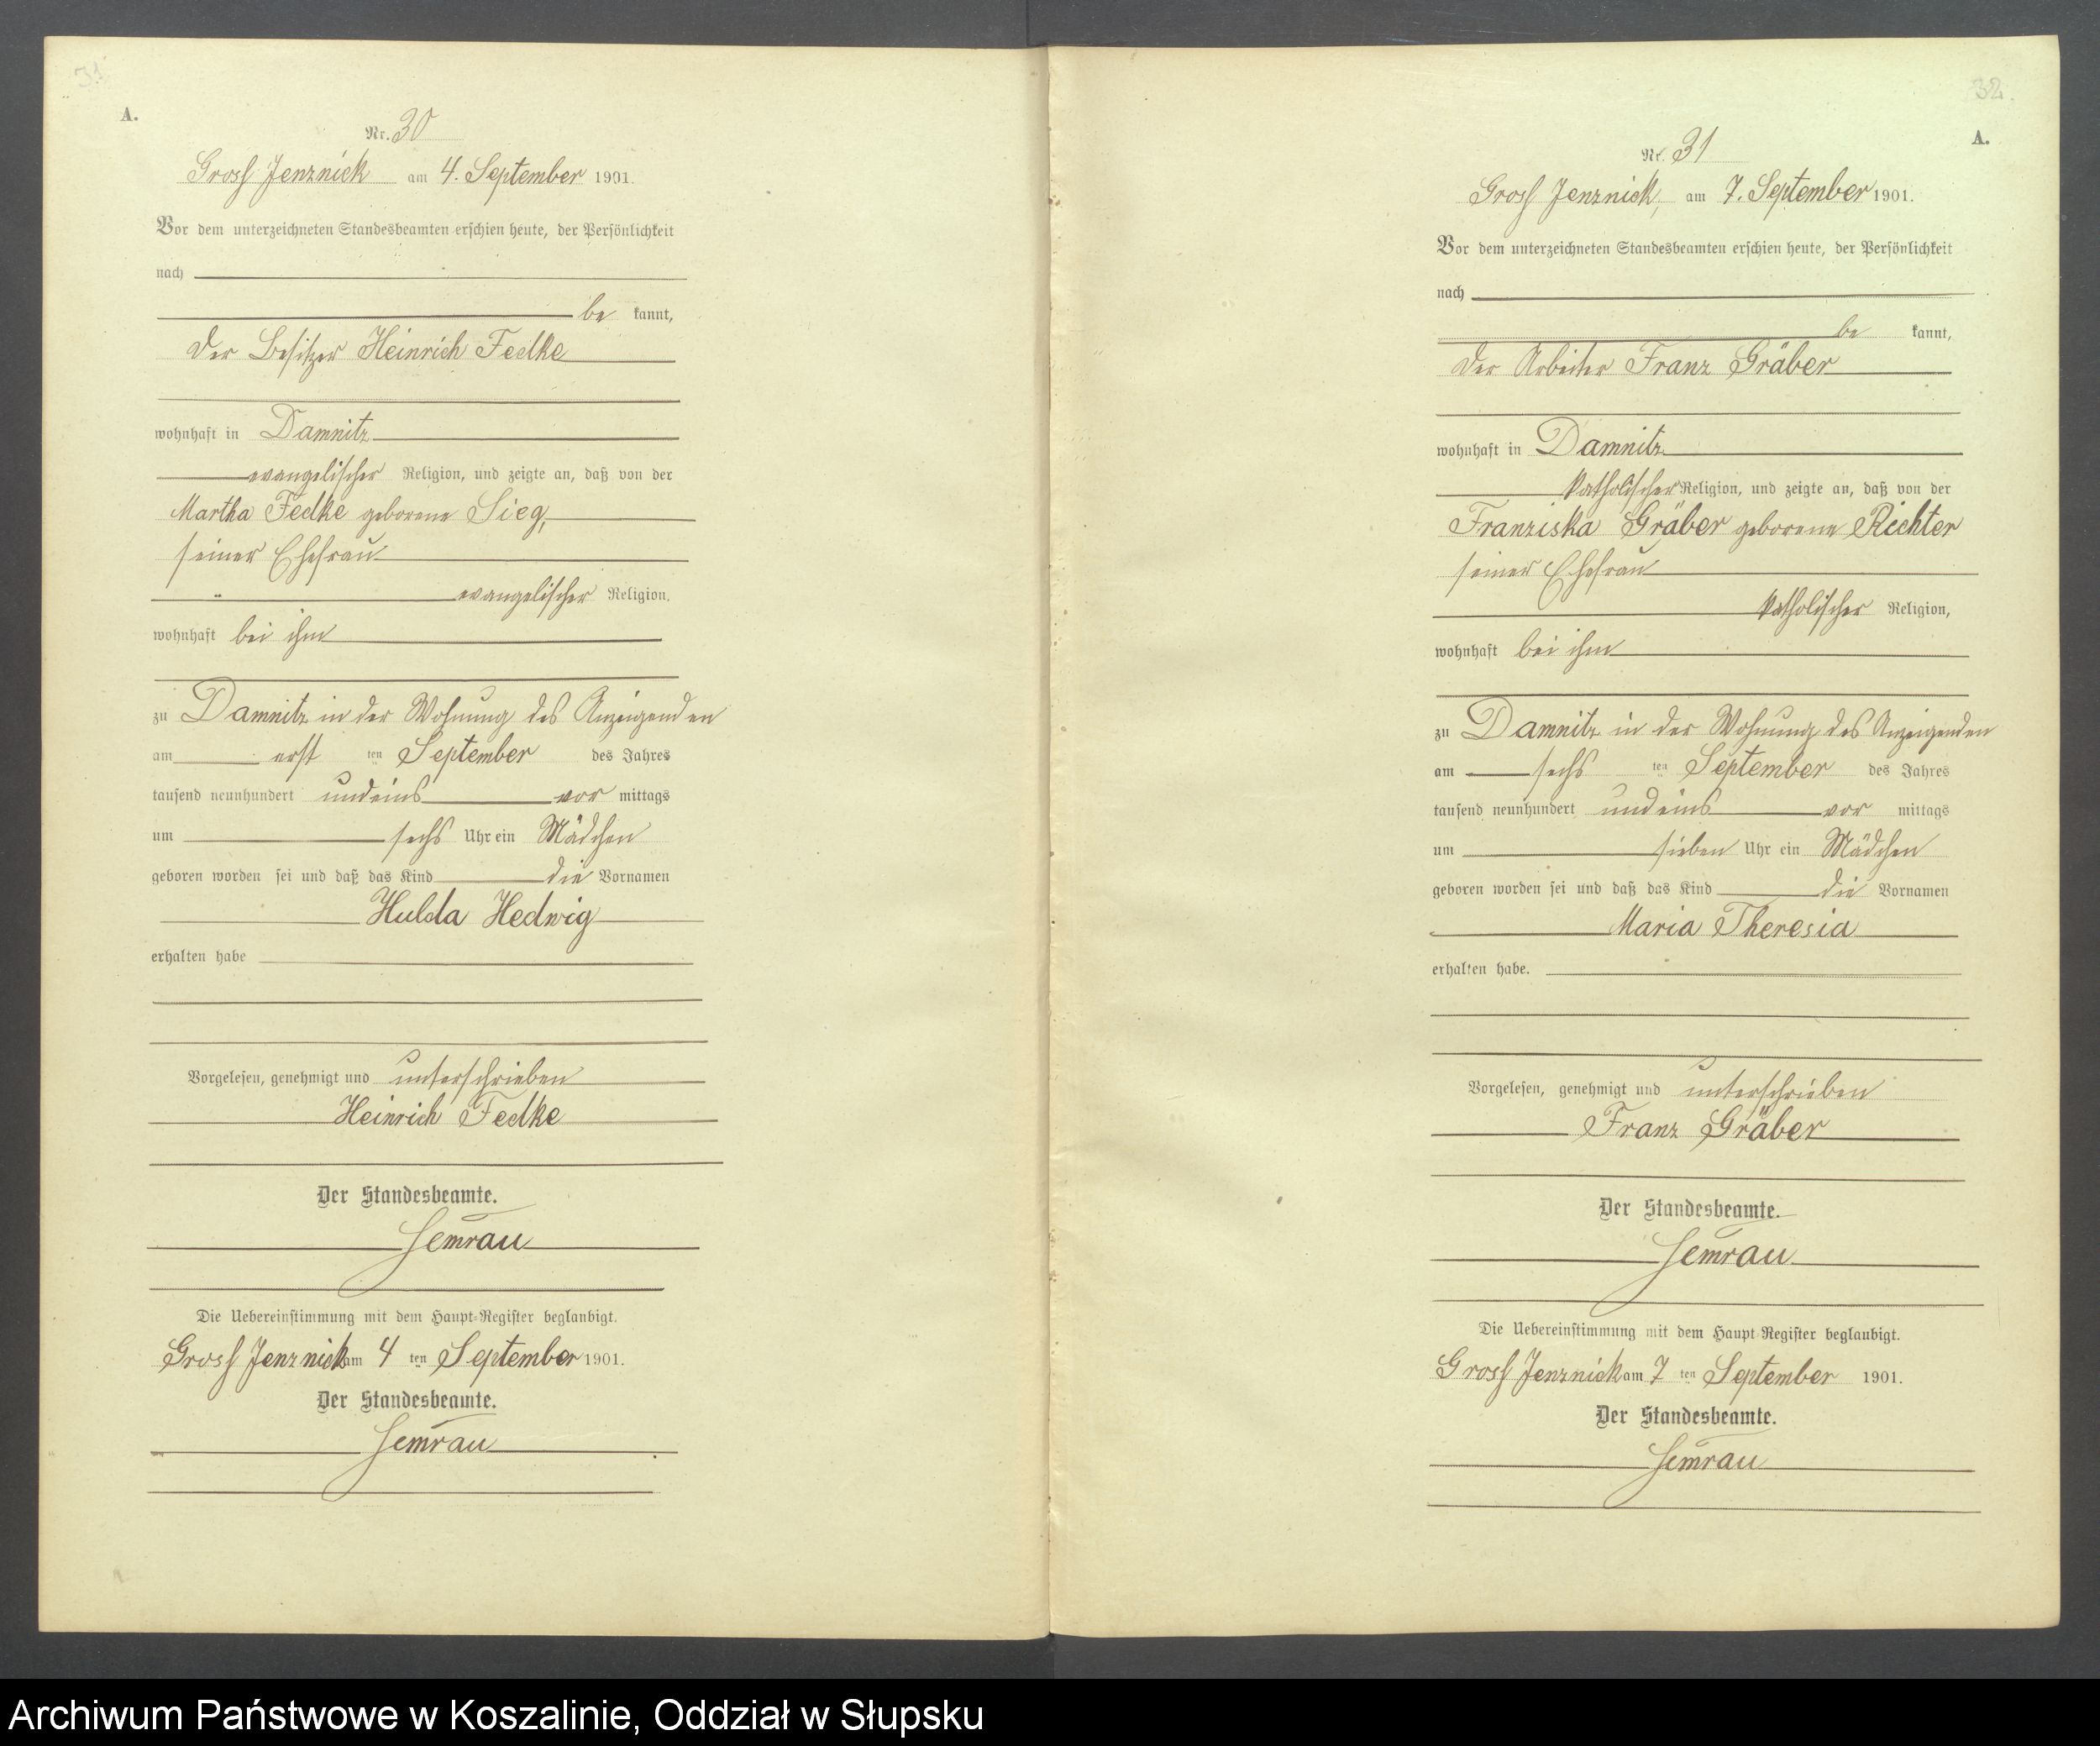 31
A.
Nr. 30
Gross Jenznick am 4. September 1901.
Vor dem unterzeichneten Standesbeamten erschien heute, der Persönlichkeit
nach
be kannt,
der Besitzer Heinrich Fedke
wohnhaft in Damnitz
evangelischer Religion, und zeigte an, daß von der
Martha Fedke geborene Sieg,
seiner Ehefrau
evangelischer Religion,
wohnhaft bei ihm
zu Damnitz in der Wohnung des Anzeigenden
am erst ten September des Jahres
tausend neunhundert undeins vor mittags
um sechs Uhr ein Mädchen
geboren worden sei und daß das Kind die Vornamen
Hulda Hedwig
erhalten habe
Vorgelesen, genehmigt und unterschrieben
Heinrich Fedke
Der Standesbeamte.
Semrau
Die Uebereinstimmung mit dem Haupt-Register beglaubigt.
Gross Jenznick am 4 ten September 1901.
Der Standesbeamte.
Semrau
32.
A.
Nr. 31
Gross Jenznick, am 7. September 1901.
Vor dem unterzeichneten Standesbeamten erschien heute, der Persönlichkeit
nach
be kannt,
der Arbeiter Franz Gräber
wohnhaft in Damnitz
katholischer Religion, und zeigte an, daß von der
Franziska Gräber geborene Richter
seiner Ehefrau
katholischer Religion,
wohnhaft bei ihm
zu Damnitz in der Wohnung des Anzeigenden
am sechs ten September des Jahres
tausend neunhundert undeins vor mittags
um sieben Uhr ein Mädchen
geboren worden sei und daß das Kind die Vornamen
Maria Theresia
erhalten habe.
Vorgelesen, genehmigt und unterschrieben
Franz Gräber
Der Standesbeamte.
Semrau
Die Uebereinstimmung mit dem Haupt-Register beglaubigt.
Gross Jenznick am 7 ten September 1901.
Der Standesbeamte.
Semrau
Archiwum Państwowe w Koszalinie, Oddział w Słupsku